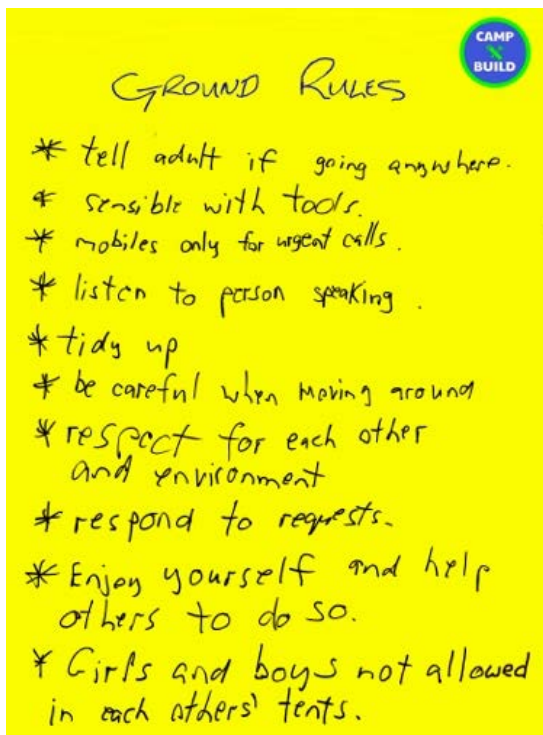 CAMP
BUILD
GROUND RULES
* tell adult if going anywhere.
* sensible with tools.
* mobiles only for urgent calls.
* listen to person speaking.
* tidy up
* be careful when moving around
* respect for each other
and environment
* respond to requests.
* Enjoy yourself and help
others to do so.
* Girls and boys not allowed
in each others' tents.